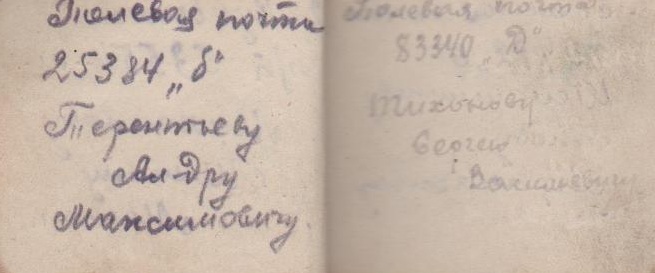 Полевая почта
25384 „б"
Терентьеву
Ал-дру
Максимовичу.
Полевая почта
83340 „Д"
Тихонову
Сергею
Васильевичу